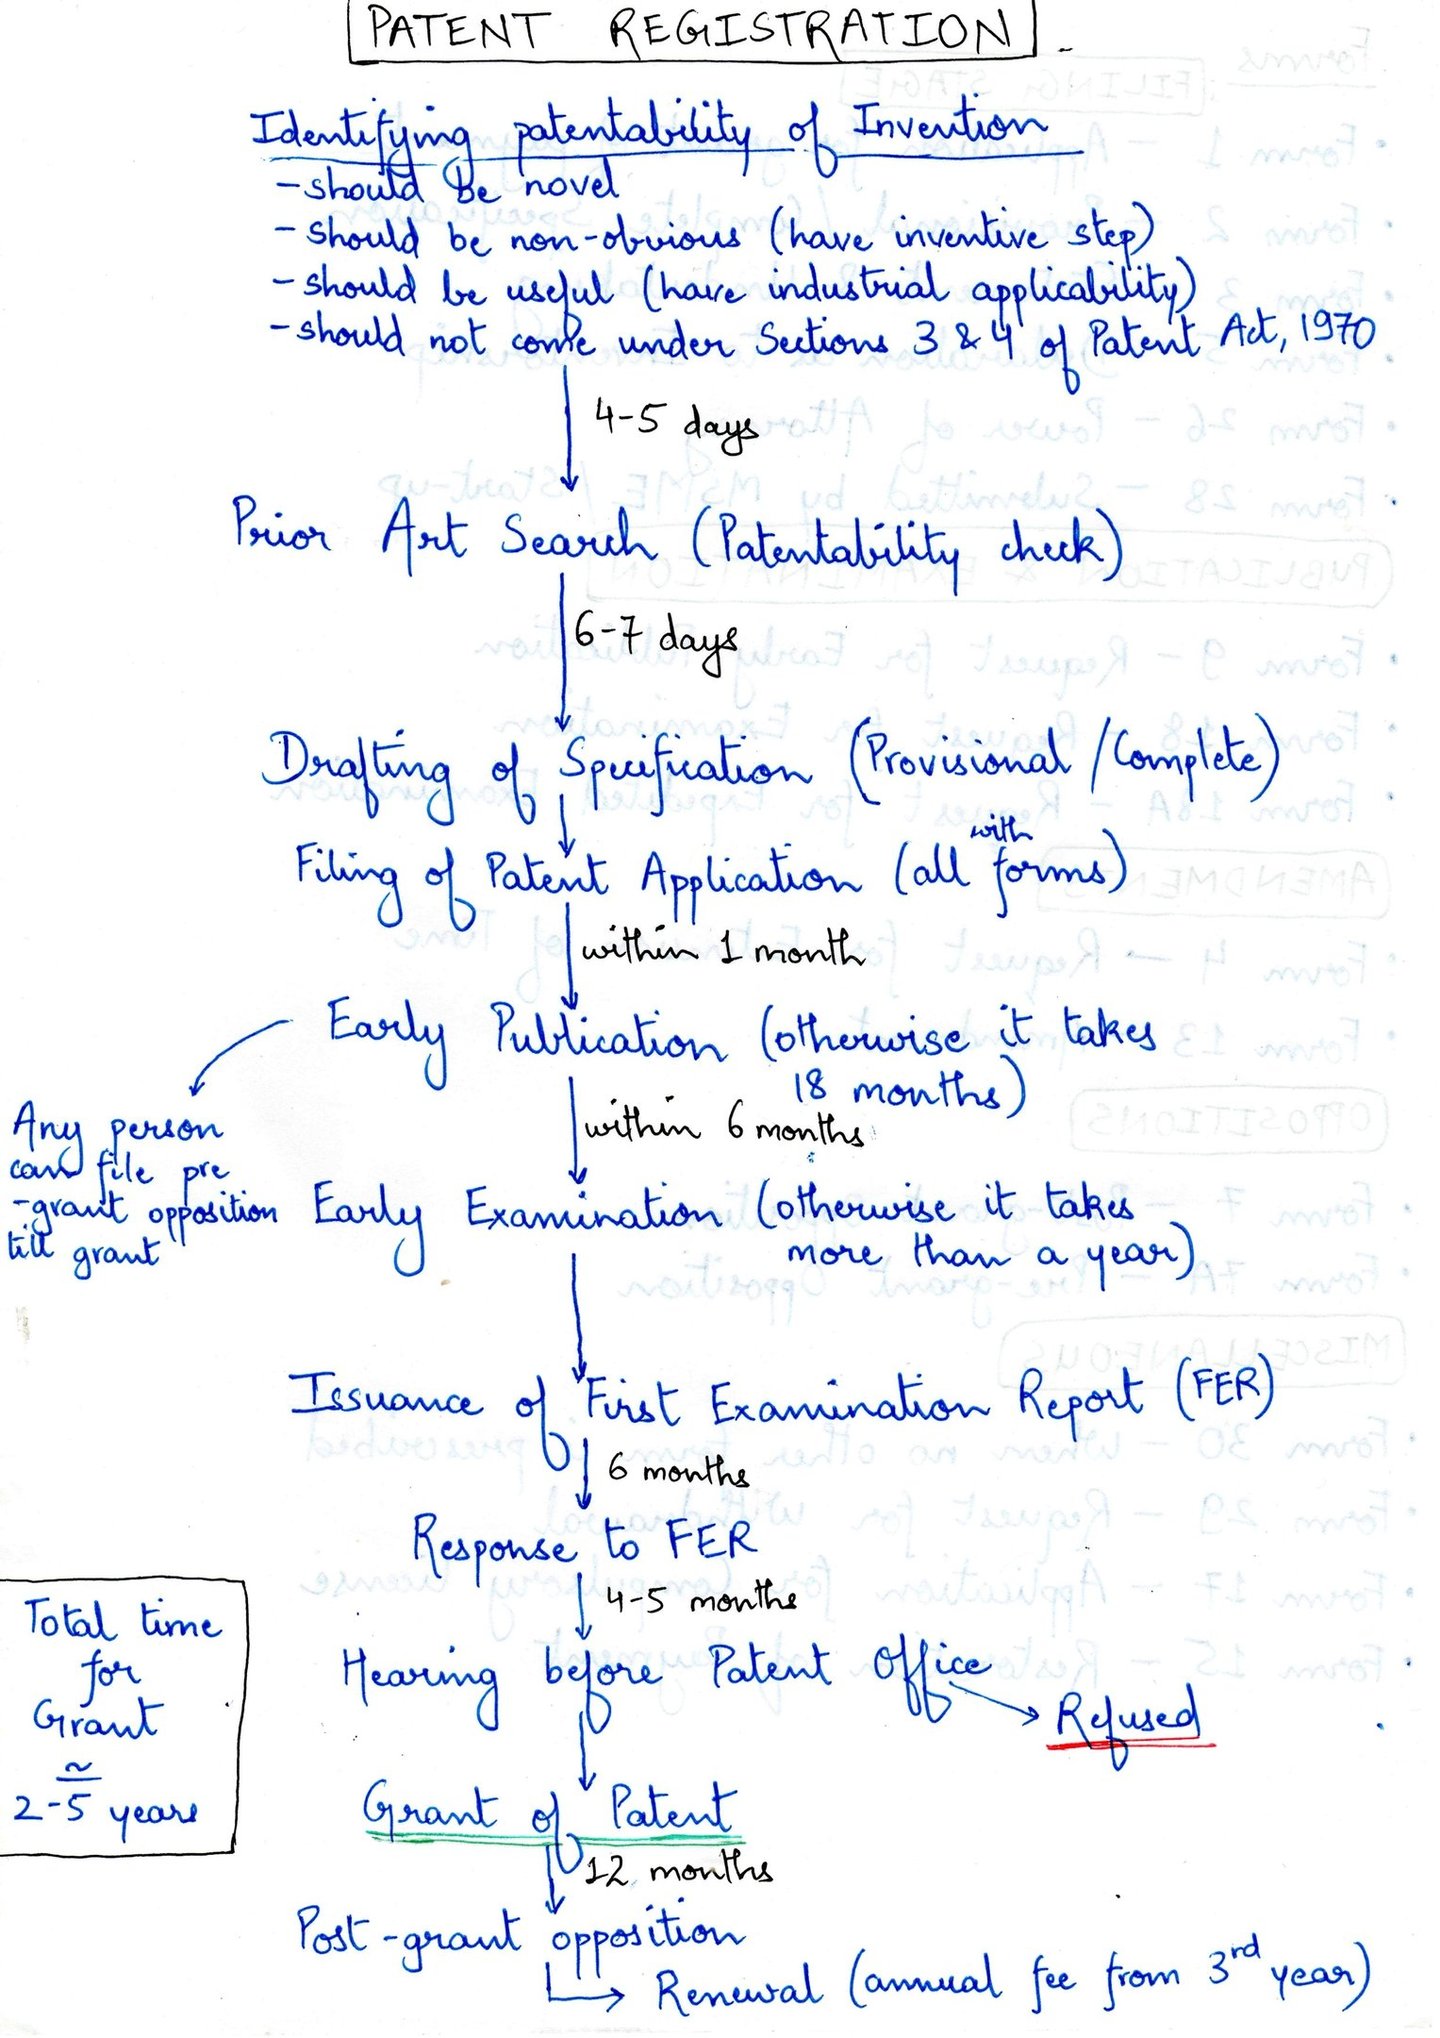 PATENT REGISTRATION
Identifying patentability of Invention
- should be novel
- should be non-obvious (have inventive step)
- should be useful (have industrial applicability)
- should not come under Sections 3 & 4 of Patent Act, 1970
4-5 days
Prior Art Search (Patentability check)
6-7 days
Drafting of Specification (Provisional / Complete)
with
Filing of Patent Application (all forms)
within 1 month
Early Publication (otherwise it takes
18 months)
Any person
can file pre
-grant opposition
till grant
within 6 months
Early Examination (otherwise it takes
more than a year)
Issuance of First Examination Report (FER)
6 months
Response to FER
4-5 months
Hearing before Patent Office
Refused
Total time
for
Grant
≃
2-5 years
Grant of Patent
12 months
Post-grant opposition
Renewal (annual fee from 3rd year)